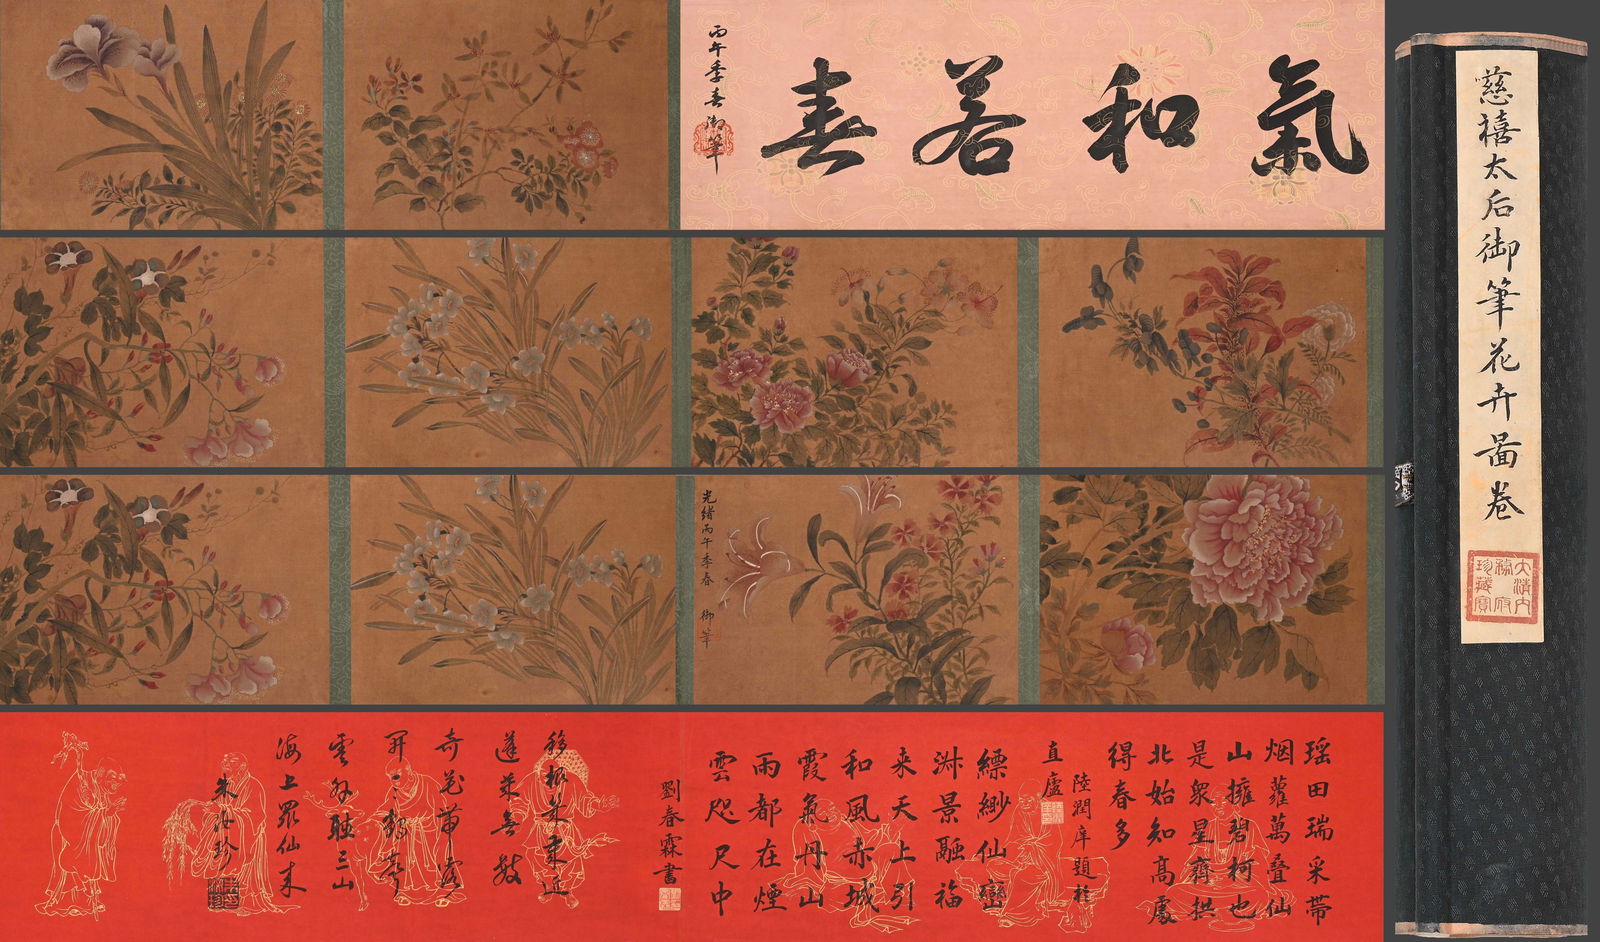 氣和若春
丙午季春御筆
光緒丙午季春 御筆
瑶田瑞采帶
烟蘿萬叠仙
山擁碧柯也
是衆星齊拱
北始知高處
得春多
陸潤庠題於
直廬
縹緲仙巒
淑景融福
来天上引
和風赤城
霞氣丹山
雨都在煙
雲咫尺中
劉春霖书
蓬萊
雲外 三山
海上羣仙来
朱汝珍
慈禧太后御筆花卉畫卷
大清内
務府
珍藏寶